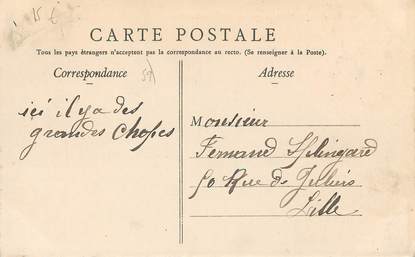 CARTE POSTALE
Tous les pays étrangers n'acceptent pas la correspondance au recto. (Se renseigner à la Poste).
Correspondance
Adresse
59
ici il y a des
grandes Chopes
Monsieur
Fernand
50 Rue de
Lille